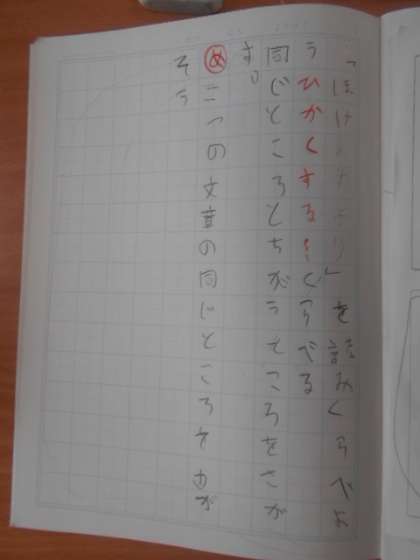 を読みくらべよ
うひかくする…くらべる
同じところとちがうところをさが
す。
め 二つの文章の同じところをさが
そう